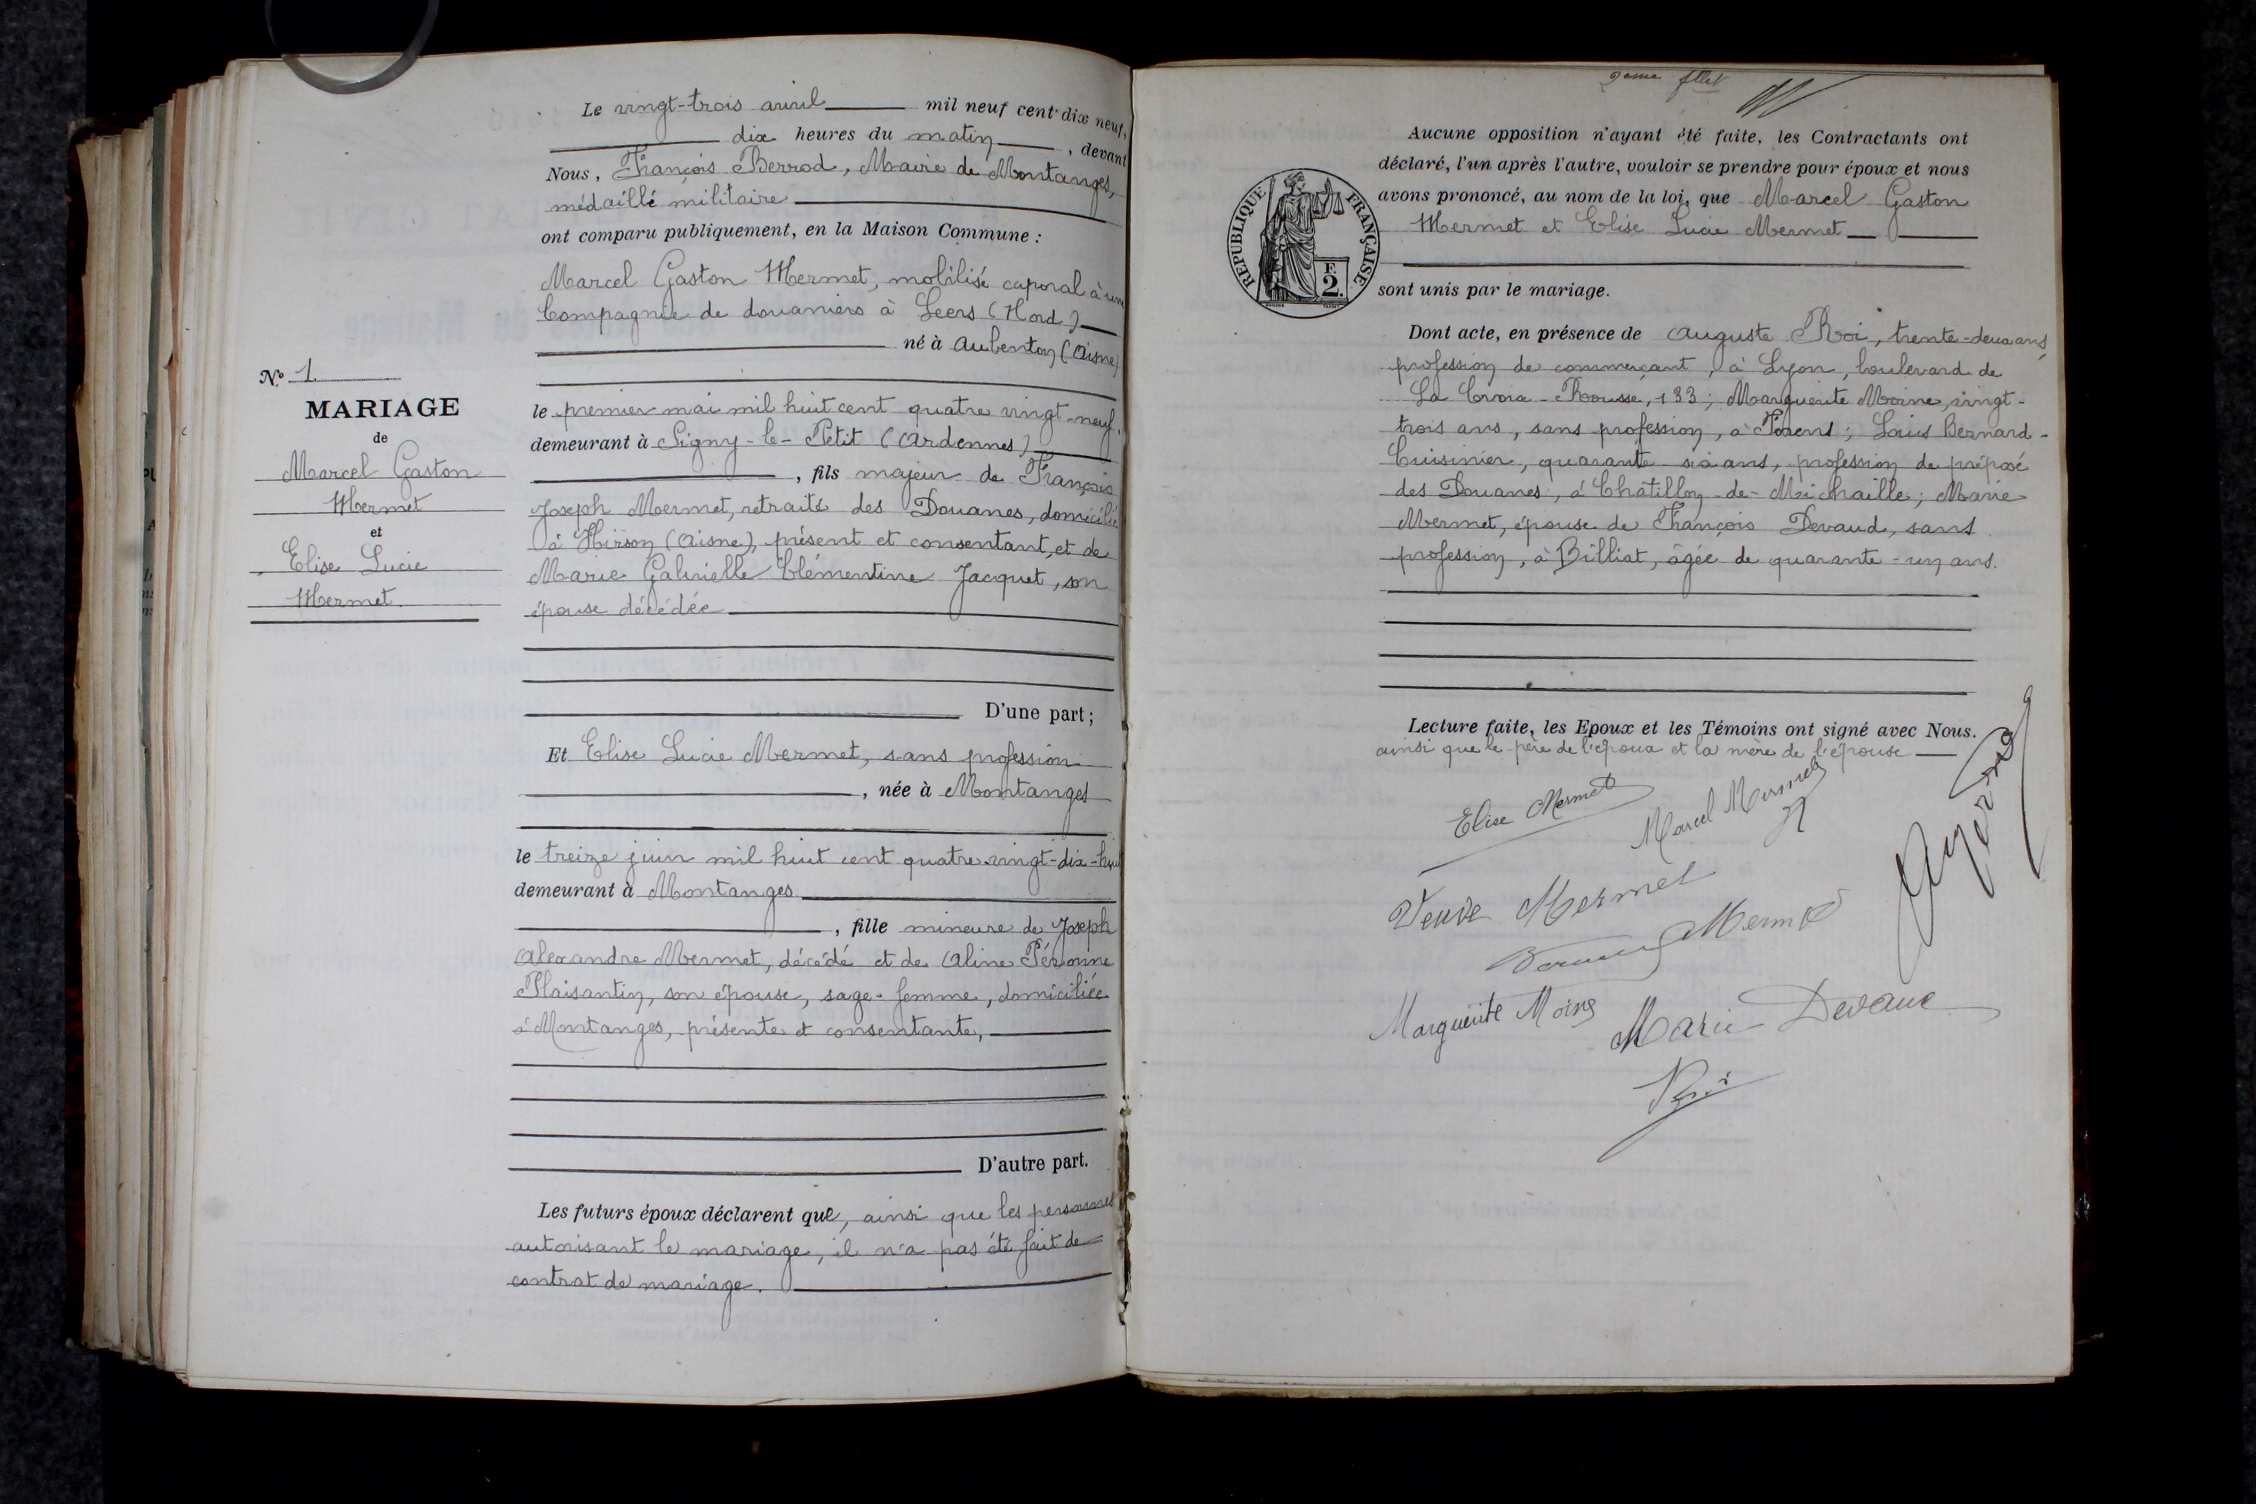 Le vingt-trois avril mil neuf cent dix neuf,
dix heures du matin, devant
Nous, François Berrod, Maire de Montanges,
médaillé militaire
ont comparu publiquement, en la Maison Commune :
Marcel Gaston Mermet, mobilisé caporal à une
Compagnie de douaniers à Leers (Nord)
né à Aubenton (Aisne)
le premier mai mil huit cent quatre vingt-neuf,
demeurant à Signy-le-Petit (Ardennes)
, fils majeur de François
Joseph Mermet, retraité des Douanes, domicilié
à Hirson (Aisne), présent et consentant, et de
Marie Gabrielle Clémentine Jacquet, son
épouse décédée
D'une part ;
Et Elise Lucie Mermet, sans profession
, née à Montanges
le treize juin mil huit cent quatre vingt-dix-huit
demeurant à Montanges
, fille mineure de Joseph
Alexandre Mermet, décédé et de Aline Péronne
Plaisantin, son épouse, sage-femme, domiciliée
à Montanges, présente et consentante,
D'autre part.
Les futurs époux déclarent que, ainsi que les personnes
autorisant le mariage, il n'a pas été fait de
contrat de mariage.
N° 1
MARIAGE
de
Marcel Gaston
Mermet
et
Elise Lucie
Mermet
2ème fllet
Aucune opposition n'ayant été faite, les Contractants ont
déclaré, l'un après l'autre, vouloir se prendre pour époux et nous
avons prononcé, au nom de la loi, que Marcel Gaston
Mermet et Elise Lucie Mermet
RÉPUBLIQUE FRANÇAISE
F.
2.
sont unis par le mariage.
Dont acte, en présence de Auguste Roi, trente-deux ans,
profession de commerçant, à Lyon, boulevard de
La Croix-Rousse, 133 ; Marguerite Moine, vingt-
trois ans, sans profession, à Forens ; Louis Bernard-
Cuisinier, quarante six ans, profession de préposé
des Douanes, à Châtillon-de-Michaille ; Marie
Mermet, épouse de François Devaud, sans
profession, à Billiat, âgée de quarante-un ans.
Lecture faite, les Epoux et les Témoins ont signé avec Nous.
ainsi que le père de l'époux et la mère de l'épouse
Elise Mermet
Marcel Mermet
Veuve Mermet
Mermet
Marguerite Moine
Marie Devaud
Roi